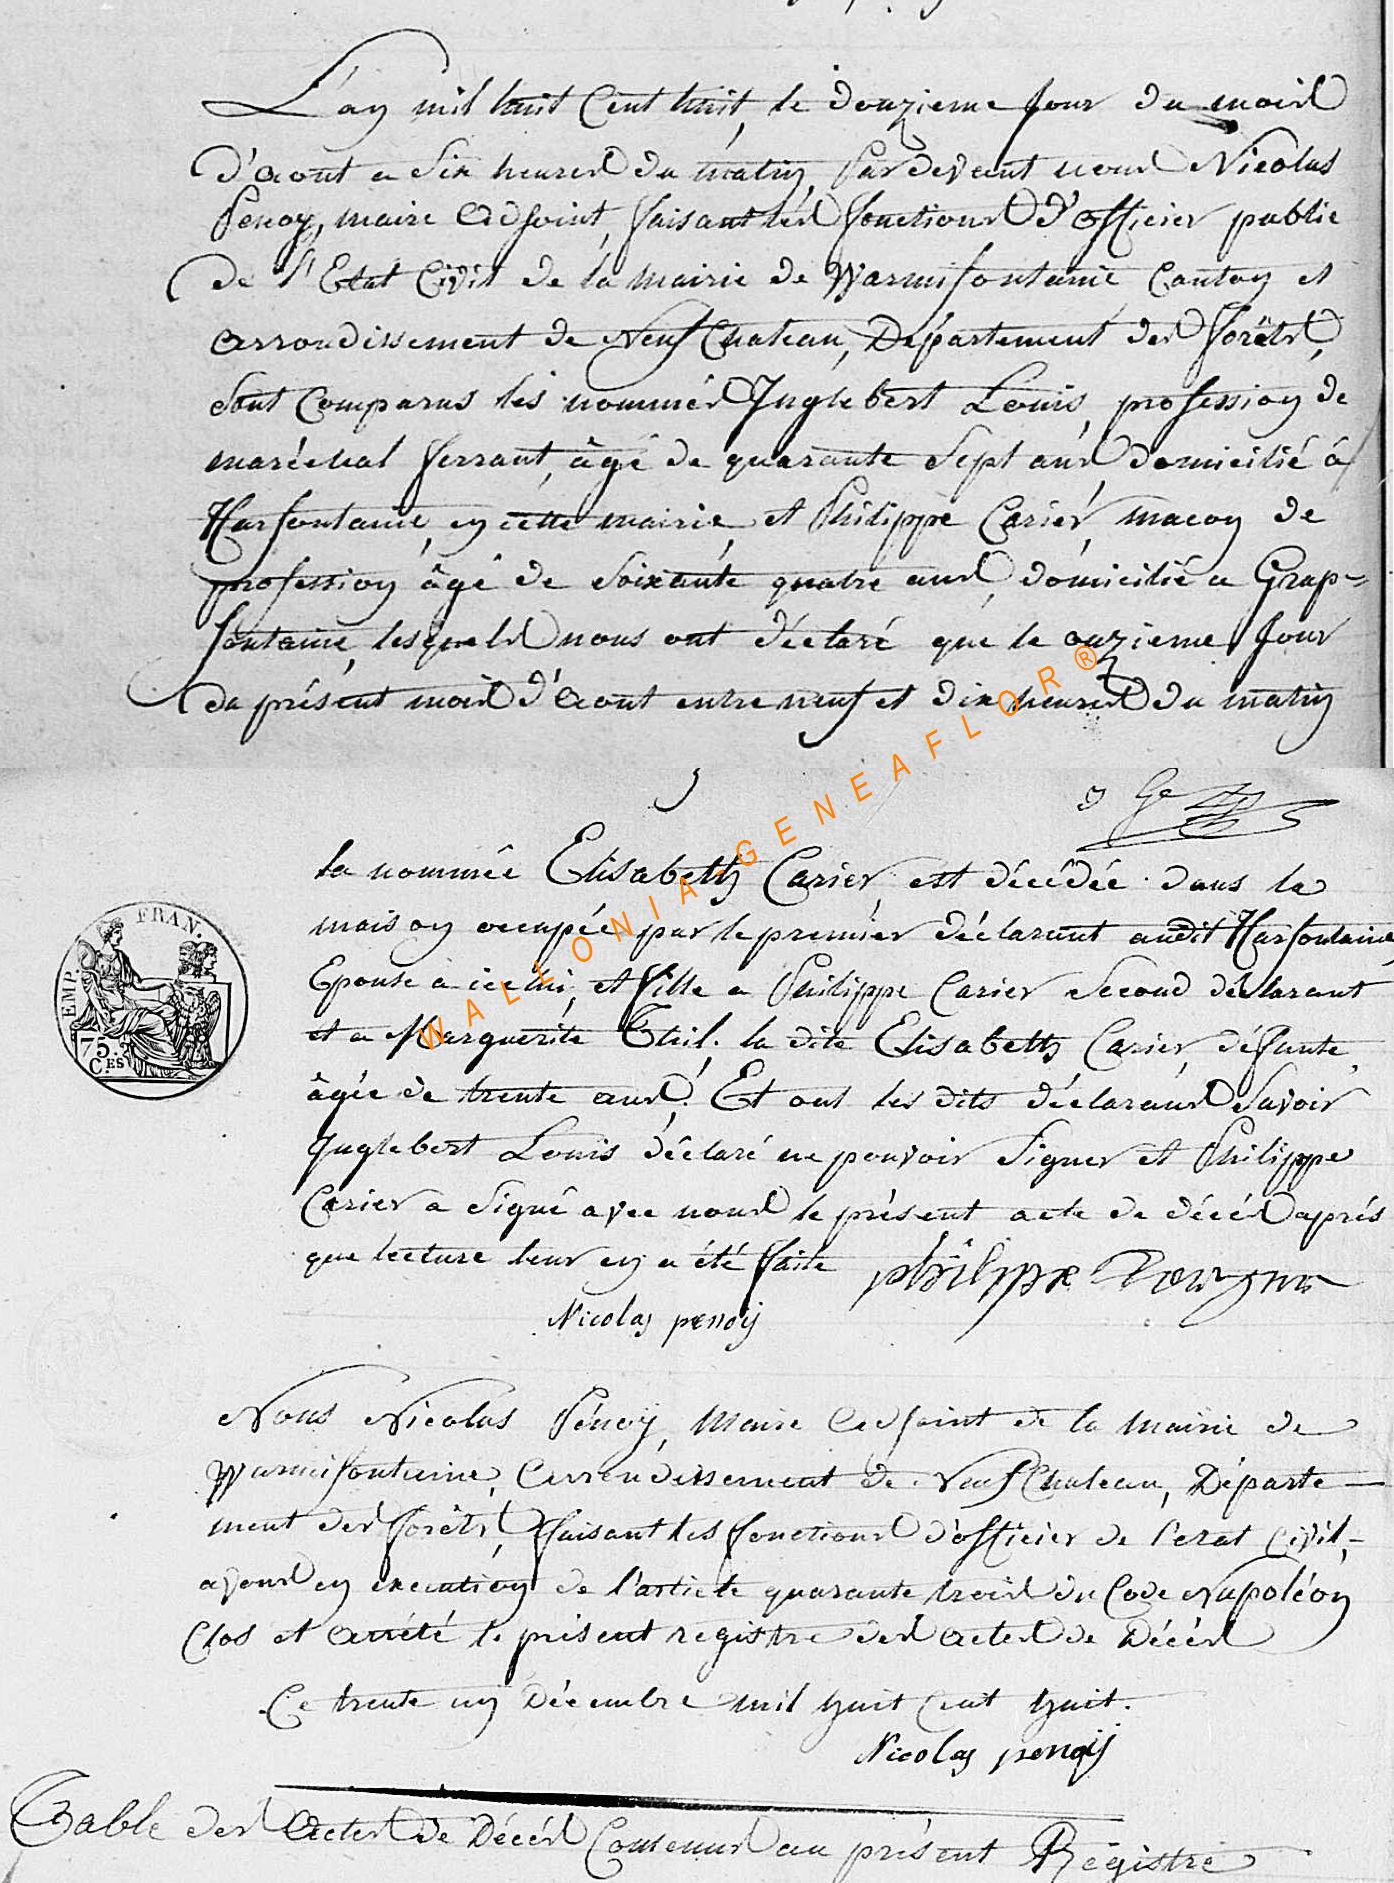 L'an mil huit Cent huit, le douzieme Jour du mois
d'aout a Six heures du matin, Pardevant nous Nicolas
Penoy, maire adjoint, faisant les fonctions d'officier public
de l'Etat Civil de la mairie de Warmifontaine Canton et
arrondissement de NeufChateau, Département des forêts,
Sont Comparus les nommés Inglebert Louis, profession de
maréchal ferrant, âgé de quarante Sept ans domicilié à
Harfontaine, en cette mairie, et Philippe Carier, macon de
profession âgé de Soixante quatre ans, domicilié a Grap=
fontaine, lesquels nous ont déclaré que le onzieme Jour
du présent mois d'aout entre neuf et dix heures du matin
la nommée Elisabeth Carier, est décédée dans la
maison occupée par le premier déclarant audit Harfontaine,
Epouse à icelui, et fille a Philippe Carier Second déclarant
et a Marguerite Thil. la dite Elisabeth Carier, défunte,
âgée de trente ans. Et ont les dits déclarans Savoir
Inglebert Louis déclaré ne pouvoir Signer et Philippe
Carier a Signé avec nous le présent acte de décès après
que lecture leur en a été faite philippe
Nicolas penoij
EMP. FRAN.
75
C.ES
Nous Nicolas Pénoy, Maire adjoint de la Mairie de
Warmifontaine, arrondissement de NeufChateau, Départe—
ment des forêts, faisant les fonctions d'officier de l'etat Civil,-
avons en execution de l'article quarante trois du Code Napoléon
Clos et arrété le présent registre des actes de Décès
Ce trente un Décembre mil huit Cent huit.
Nicolas penoij
Table des Actes de Décès Contenus au présent Régistre
WALLONIA-GENEAFLOR®